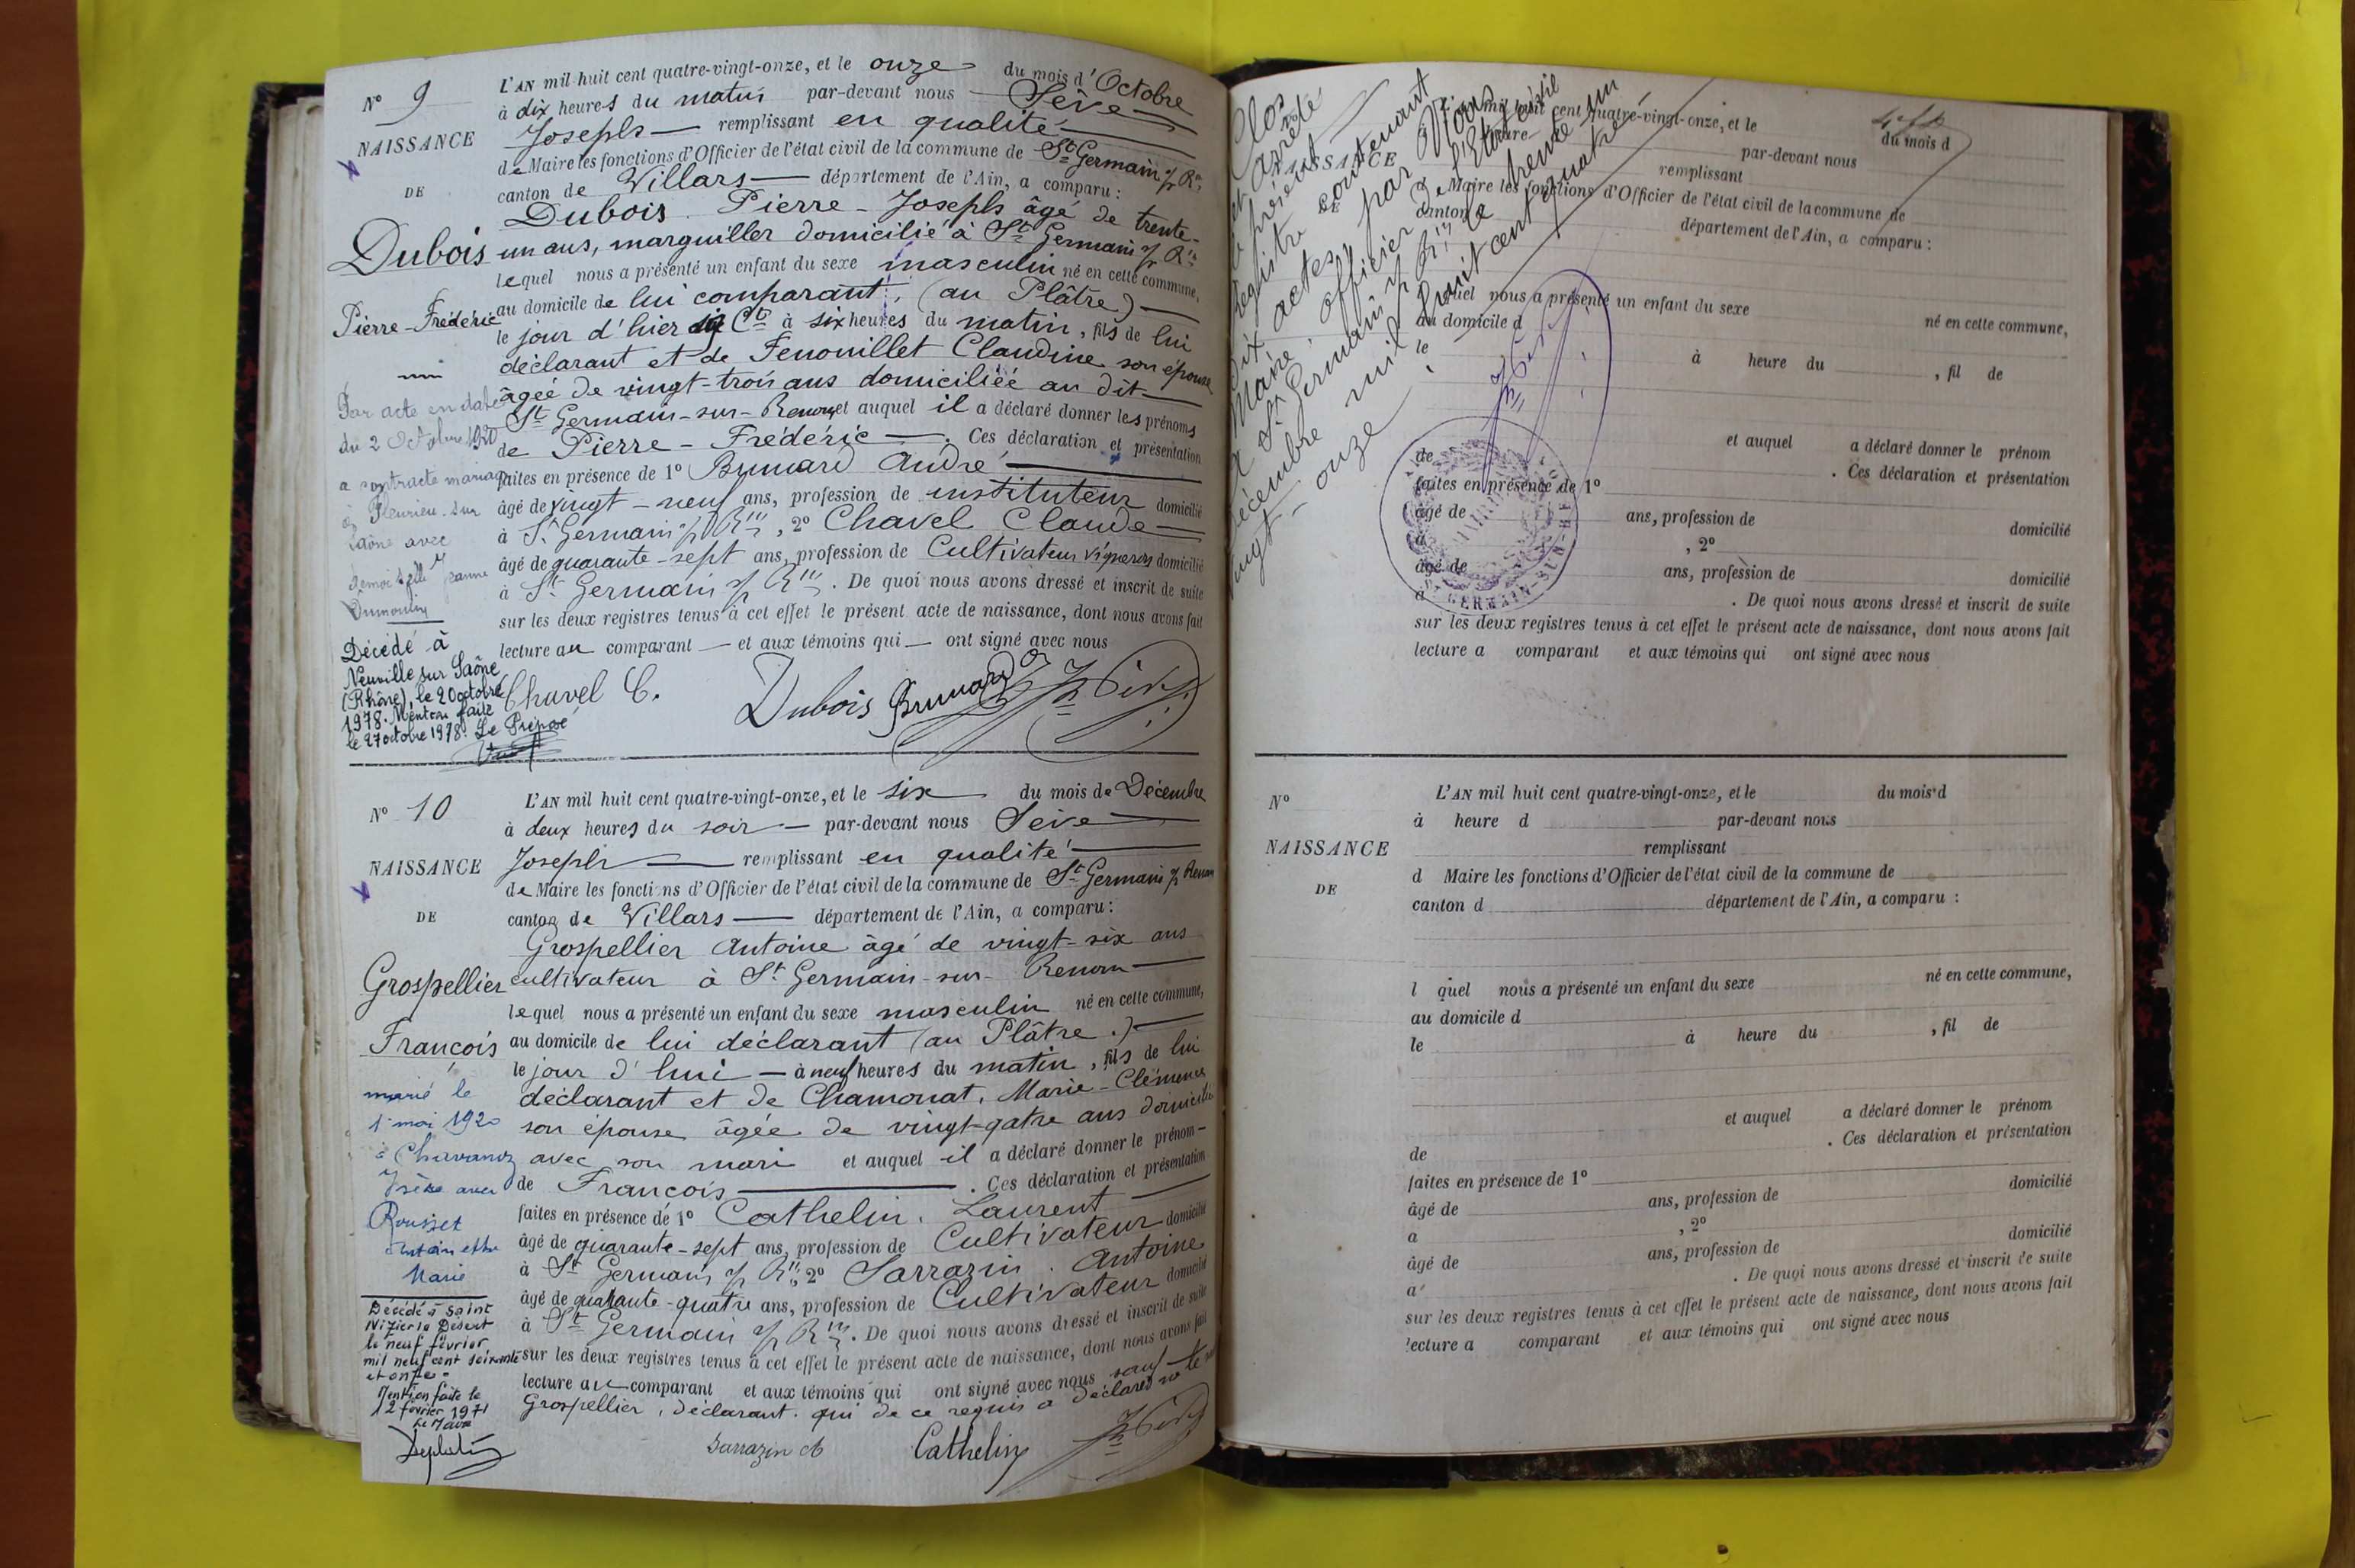 N° 9
NAISSANCE
DE
Dubois
Pierre-Frédéric
Par acte en date
du 2 Octobre 1920
a contracté mariage
à Fleurieu-sur
Saône avec
demoiselle Jeanne
Dumoulin
Décédé à
Neuville sur Saône
(Rhône), le 20 octobre
1978. Mention faite
le 27 octobre 1978. Le Préposé
L'AN mil huit cent quatre-vingt-onze, et le onze du mois d'Octobre
à dix heures du matin par-devant nous Sève
Joseph remplissant en qualité
de Maire les fonctions d'Officier de l'état civil de la commune de St Germain s/ Rn
canton de Villars département de l'Ain, a comparu :
Dubois Pierre-Joseph âgé de trente-
un ans, marguiller domicilié à St Germain s/ Rn
lequel nous a présenté un enfant du sexe masculin né en cette commune,
au domicile de lui comparant, (au Plâtre.)
le jour d'hier dix Ct à six heures du matin, fils de lui
déclarant et de Fenouillet Claudine son épouse
âgée de vingt-trois ans domiciliée au dit
St Germain-sur-Renom et auquel il a déclaré donner les prénoms
de Pierre-Frédéric . Ces déclaration et présentation
faites en présence de 1° Brunard André
âgé de vingt-neuf ans, profession de instituteur domicilié
à St Germain s/ Rn, 2° Chavel Claude
âgé de quarante-sept ans, profession de Cultivateur vigneron domicilié
à St Germain s/ Rn. De quoi nous avons dressé et inscrit de suite
sur les deux registres tenus à cet effet le présent acte de naissance, dont nous avons fait
lecture au comparant et aux témoins qui ont signé avec nous
Chavel C. Dubois Brunard Jh Sève
N° 10
NAISSANCE
DE
Grospellier
François
marié le
1er mai 1920
à Chavanoz
Isère avec
Rousset
Antoinette
Marie
Décédé à Saint
Nizier le Désert
le neuf février
mil neuf cent soixante
et onze.
Mention faite le
12 février 1971
Le Maire
L'AN mil huit cent quatre-vingt-onze, et le six du mois de Décembre
à deux heures du soir par-devant nous Sève
Joseph remplissant en qualité
de Maire les fonctions d'Officier de l'état civil de la commune de St Germain s/ Renom
canton de Villars département de l'Ain, a comparu :
Grospellier Antoine âgé de vingt-six ans
cultivateur à St Germain-sur-Renom
lequel nous a présenté un enfant du sexe masculin né en cette commune,
au domicile de lui déclarant (au Plâtre.)
le jour d'hui à neuf heures du matin, fils de lui
déclarant et de Chamonat, Marie-Clémence
son épouse âgée de vingt-qatre ans domiciliée
avec son mari et auquel il a déclaré donner le prénom
de François . Ces déclaration et présentation
faites en présence de 1° Cathelin, Laurent
âgé de quarante-sept ans, profession de Cultivateur domicilié
à St Germain s/ Rn, 2° Sarrazin Antoine
âgé de quarante-quatre ans, profession de Cultivateur domicilié
à St Germain s/ Rn. De quoi nous avons dressé et inscrit de suite
sur les deux registres tenus à cet effet le présent acte de naissance, dont nous avons fait
lecture au comparant et aux témoins qui ont signé avec nous sauf le
Grospellier, déclarant qui de ce requis a déclaré ne
Sarrazin Cathelin Jh Sève
Clos
et arrêté
le présent
registre contenant
dix actes, par Nous
Maire, officier de l'Etat civil
à St Germain s/ Rn le trente un
décembre mil huit cent quatre
vingt-onze.
Jh Sève
MAIRIE
ST GERMAIN-SUR-RE
NAISSANCE
DE
L'AN mil huit cent quatre-vingt-onze, et le du mois d
heure par-devant nous
remplissant
d Maire les fonctions d'Officier de l'état civil de la commune de
canton département de l'Ain, a comparu :
quel nous a présenté un enfant du sexe né en cette commune,
au domicile d
le à heure du , fil de
et auquel a déclaré donner le prénom
de . Ces déclaration et présentation
faites en présence de 1°
âgé de ans, profession de domicilié
a , 2°
âgé de ans, profession de domicilié
a . De quoi nous avons dressé et inscrit de suite
sur les deux registres tenus à cet effet le présent acte de naissance, dont nous avons fait
lecture a comparant et aux témoins qui ont signé avec nous
N°
NAISSANCE
DE
L'AN mil huit cent quatre-vingt-onze, et le du mois d
à heure d par-devant nous
remplissant
d Maire les fonctions d'Officier de l'état civil de la commune de
canton d département de l'Ain, a comparu :
l quel nous a présenté un enfant du sexe né en cette commune,
au domicile d
le à heure du , fil de
et auquel a déclaré donner le prénom
de . Ces déclaration et présentation
faites en présence de 1°
âgé de ans, profession de domicilié
a , 2°
âgé de ans, profession de domicilié
a . De quoi nous avons dressé et inscrit de suite
sur les deux registres tenus à cet effet le présent acte de naissance, dont nous avons fait
lecture a comparant et aux témoins qui ont signé avec nous